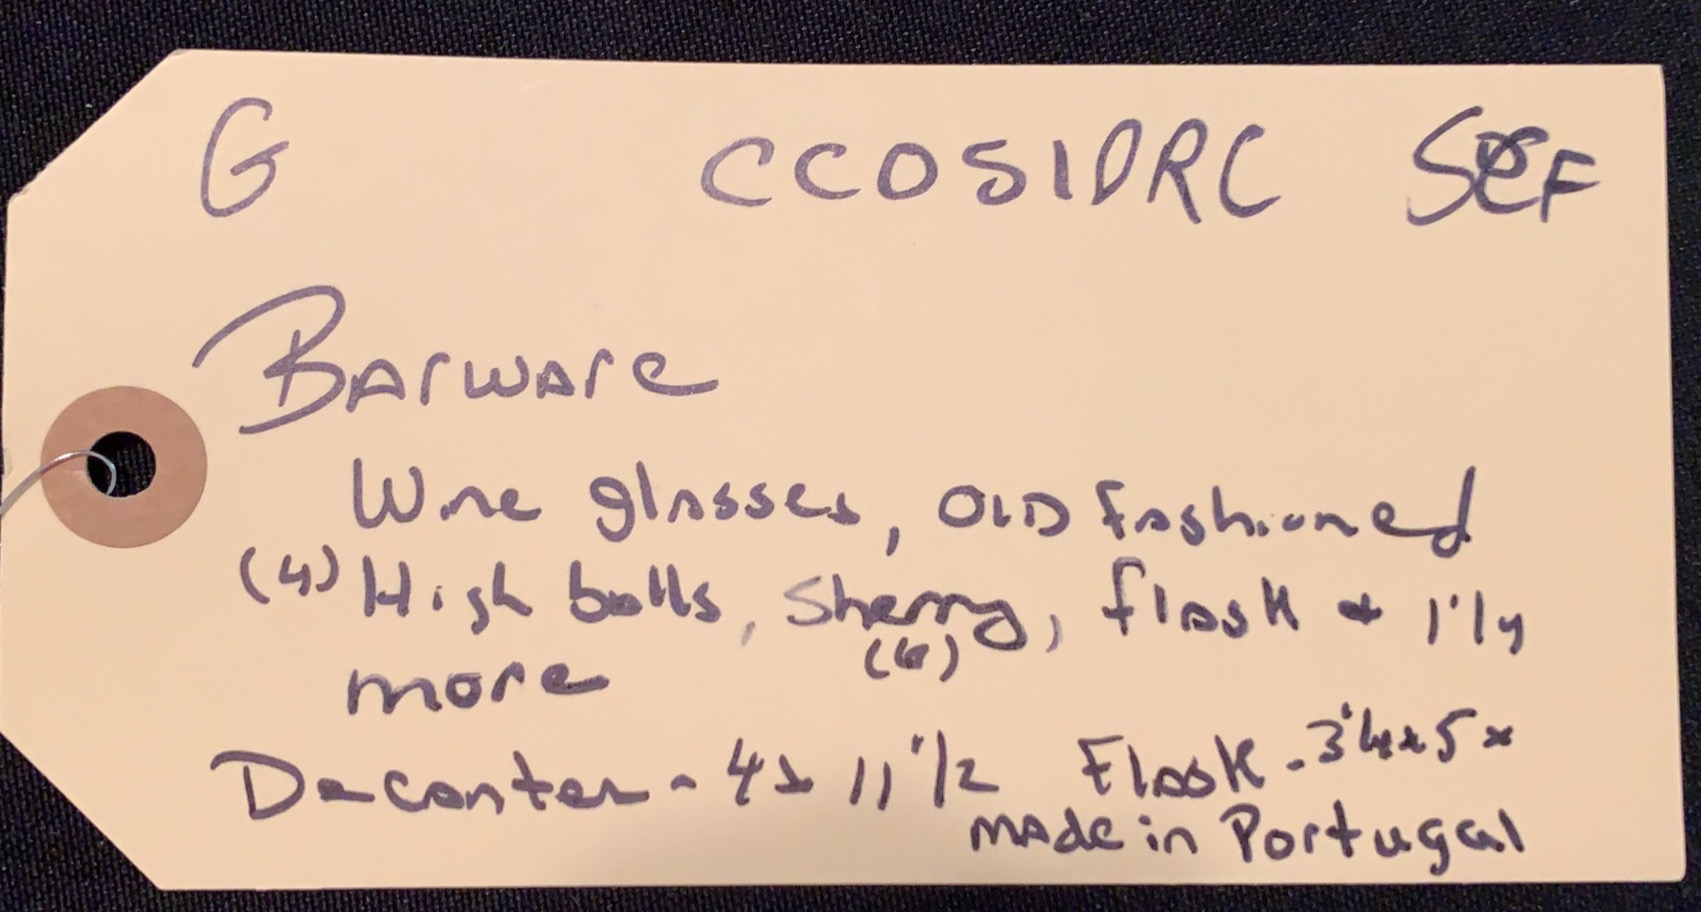 G CCOSIDRC
Barware
Wine glasses, OLD Fashioned
(4) High balls, Sherry, flask + 1 1/4
(6)
more
Decanter - 4 x 11 1/2 Flask - 3 1/4 x 5 x
made in Portugal